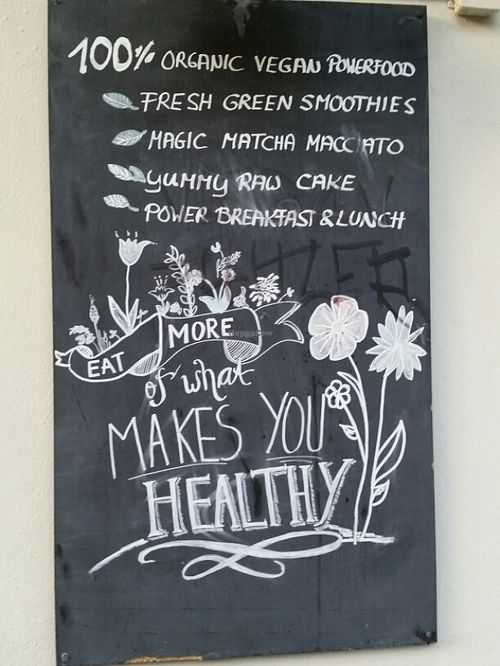 100% ORGANIC VEGAN POWERFOOD
FRESH GREEN SMOOTHIES
MAGIC MATCHA MACCIATO
YUMMY RAW CAKE
POWER BREAKFAST & LUNCH
EAT MORE
of what
MAKES YOU
HEALTHY